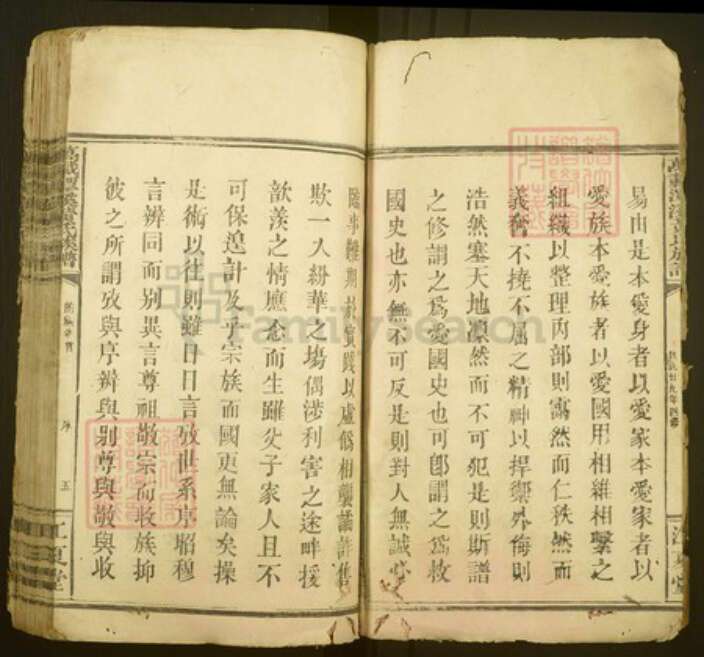 易由是本愛身者以愛家本愛家者以
愛族本愛族者以愛國用相維相繫之
組織以整理內部則藹然而仁秩然而
義奮不撓不屈之精神以捍禦外侮則
浩然塞天地凜然而不可犯是則斯譜
之修謂之爲愛國史也可卽謂之爲救
國史也亦無不可反是則對人無誠心
臨事難期於實踐以虛僞相襲譎詐售
欺一入紛華之塲偶涉利害之途畔援
歆羨之情應念而生雖父子家人且不
可保遑計及乎宗族而國更無論矣操
是術以往則雖日日言攷世系序昭穆
言辨同而别異言尊祖敬宗而收族抑
彼之所謂攷與序辨與别尊與敬與收
序
五
江夏堂
江夏堂
FamilySearch